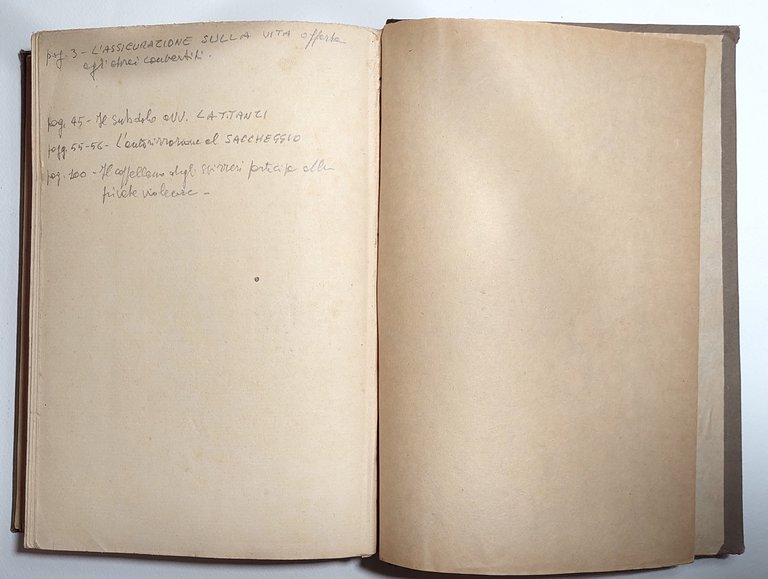 pag. 3 - L'ASSICURAZIONE SULLA VITA offerta
agli ebrei convertiti.
pag. 45 - Il subdolo avv. LATTANZI
pagg. 55-56 - L'autorizzazione al SACCHEGGIO
pag. 100 - Il cappellano degli Svizzeri partecipa alle
private violenze -